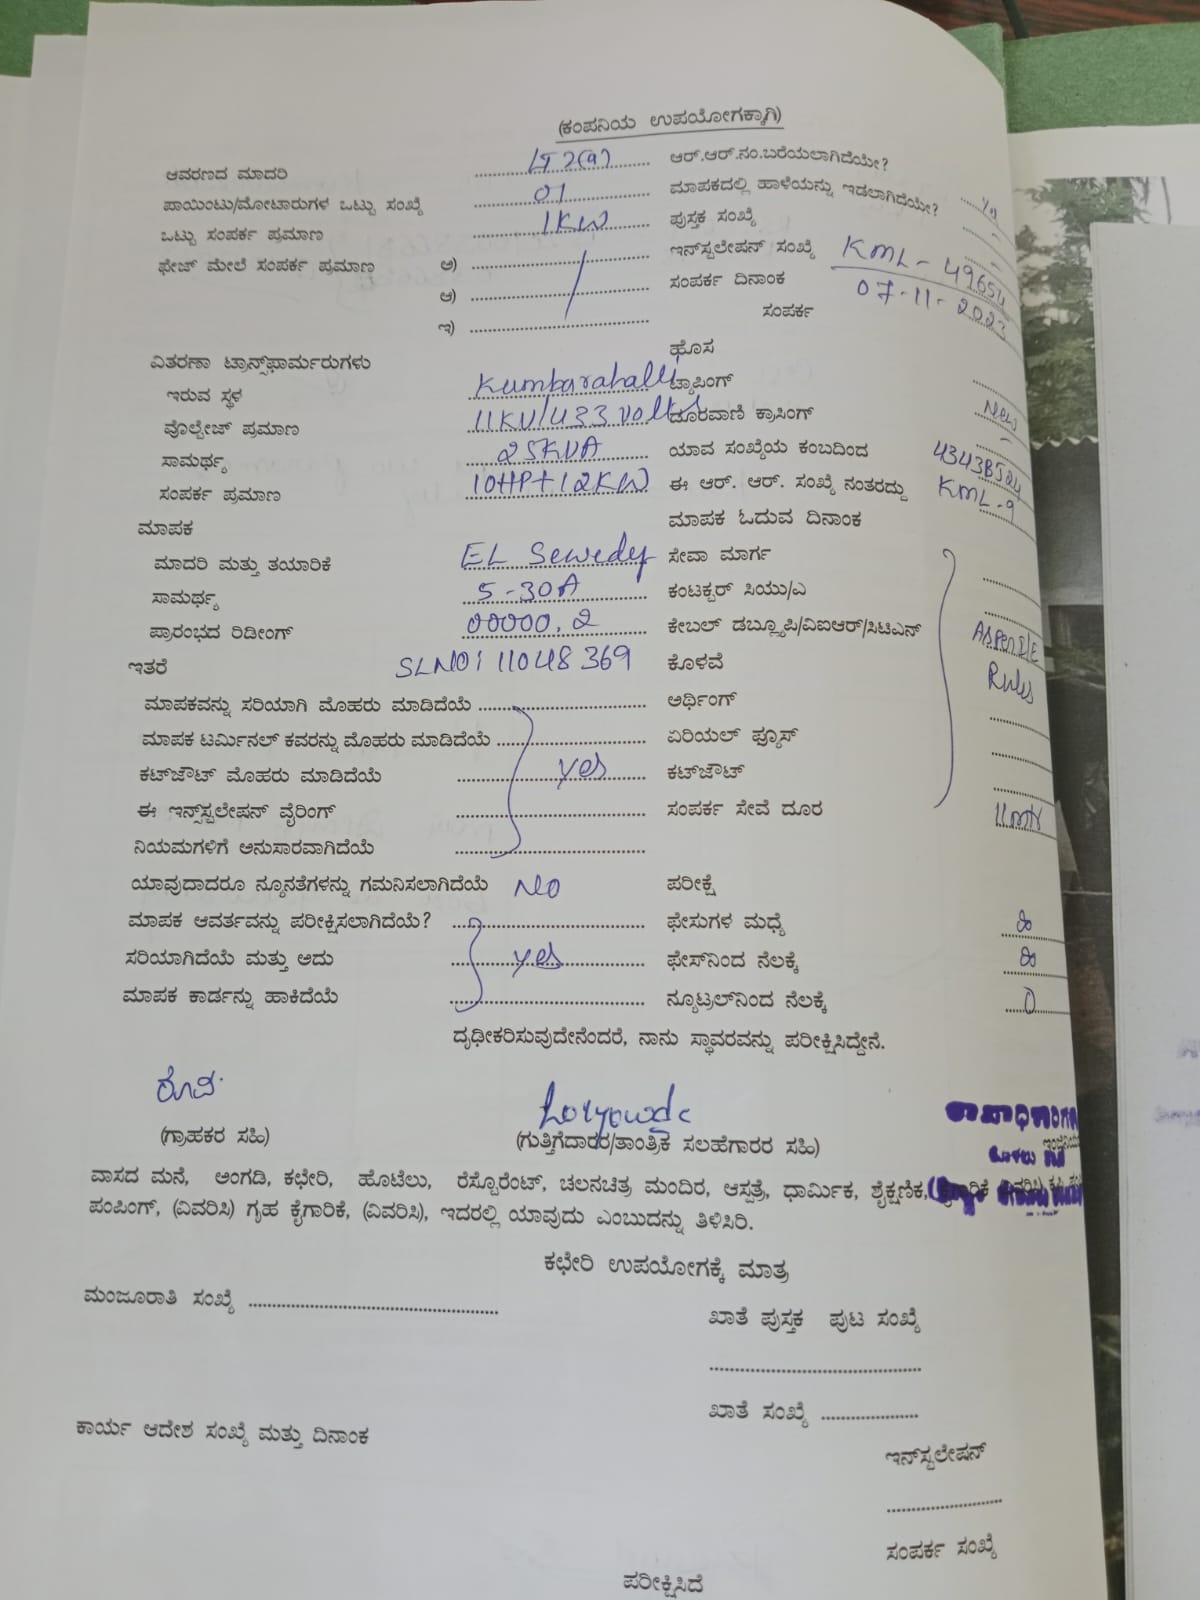 (ಕಂಪನಿಯ ಉಪಯೋಗಕ್ಕಾಗಿ)
ಆವರಣದ ಮಾದರಿ LT 2(a) ಆರ್.ಆರ್.ನಂ.ಬರೆಯಲಾಗಿದೆಯೇ?
ಪಾಯಿಂಟು/ಮೋಟಾರುಗಳ ಒಟ್ಟು ಸಂಖ್ಯೆ 01 ಮಾಪಕದಲ್ಲಿ ಹಾಳೆಯನ್ನು ಇಡಲಾಗಿದೆಯೇ?
ಒಟ್ಟು ಸಂಪರ್ಕ ಪ್ರಮಾಣ 1KW ಪುಸ್ತಕ ಸಂಖ್ಯೆ
ಫೇಜ್ ಮೇಲೆ ಸಂಪರ್ಕ ಪ್ರಮಾಣ ಅ) ಇನ್‌ಸ್ಟಲೇಷನ್ ಸಂಖ್ಯೆ KML - 49654
ಆ) ಸಂಪರ್ಕ ದಿನಾಂಕ 07-11-2023
ಇ) ಸಂಪರ್ಕ
ವಿತರಣಾ ಟ್ರಾನ್ಸ್‌ಫಾರ್ಮರುಗಳು ಹೊಸ
ಇರುವ ಸ್ಥಳ Kumbarahalli ಟ್ಯಾಪಿಂಗ್
ವೊಲ್ಟೇಜ್ ಪ್ರಮಾಣ 11KV/433 volts ದೂರವಾಣಿ ಕ್ರಾಸಿಂಗ್ New
ಸಾಮರ್ಥ್ಯ 25KVA ಯಾವ ಸಂಖ್ಯೆಯ ಕಂಬದಿಂದ
ಸಂಪರ್ಕ ಪ್ರಮಾಣ 10HP+12KW ಈ ಆರ್. ಆರ್. ಸಂಖ್ಯೆ ನಂತರದ್ದು KML-9
ಮಾಪಕ ಮಾಪಕ ಓದುವ ದಿನಾಂಕ
ಮಾದರಿ ಮತ್ತು ತಯಾರಿಕೆ EL Sewedy ಸೇವಾ ಮಾರ್ಗ
ಸಾಮರ್ಥ್ಯ 5-30A ಕಂಟಕ್ಟರ್ ಸಿಯು/ಎ
ಪ್ರಾರಂಭದ ರಿಡೀಂಗ್ 00000.2 ಕೇಬಲ್ ಡಬ್ಲ್ಯೂಪಿ/ವಿಐಆರ್/ಸಿಟಿಎನ್
ಇತರೆ SLNO: 11048369 ಕೊಳವೆ Rules
ಮಾಪಕವನ್ನು ಸರಿಯಾಗಿ ಮೊಹರು ಮಾಡಿದೆಯೆ ಅರ್ಥಿಂಗ್
ಮಾಪಕ ಟರ್ಮಿನಲ್ ಕವರನ್ನು ಮೊಹರು ಮಾಡಿದೆಯೆ ಏರಿಯಲ್ ಫ್ಯೂಸ್
ಕಟ್‌ಜೌಟ್ ಮೊಹರು ಮಾಡಿದೆಯೆ yes ಕಟ್‌ಜೌಟ್
ಈ ಇನ್ಸ್‌ಸ್ಟಲೇಷನ್ ವೈರಿಂಗ್ ಸಂಪರ್ಕ ಸೇವೆ ದೂರ
ನಿಯಮಗಳಿಗೆ ಅನುಸಾರವಾಗಿದೆಯೆ
ಯಾವುದಾದರೂ ನ್ಯೂನತೆಗಳನ್ನು ಗಮನಿಸಲಾಗಿದೆಯೆ NO ಪರೀಕ್ಷೆ
ಮಾಪಕ ಆವರ್ತವನ್ನು ಪರೀಕ್ಷಿಸಲಾಗಿದೆಯೆ? ಫೇಸುಗಳ ಮಧ್ಯೆ
ಸರಿಯಾಗಿದೆಯೆ ಮತ್ತು ಅದು yes ಫೇಸ್‌ನಿಂದ ನೆಲಕ್ಕೆ
ಮಾಪಕ ಕಾರ್ಡನ್ನು ಹಾಕಿದೆಯೆ ನ್ಯೂಟ್ರಲ್‌ನಿಂದ ನೆಲಕ್ಕೆ 0
ದೃಢೀಕರಿಸುವುದೇನೆಂದರೆ, ನಾನು ಸ್ಥಾವರವನ್ನು ಪರೀಕ್ಷಿಸಿದ್ದೇನೆ.
(ಗ್ರಾಹಕರ ಸಹಿ) (ಗುತ್ತಿಗೆದಾರರ/ತಾಂತ್ರಿಕ ಸಲಹೆಗಾರರ ಸಹಿ)
ವಾಸದ ಮನೆ, ಅಂಗಡಿ, ಕಛೇರಿ, ಹೊಟೆಲು, ರೆಸ್ಟೋರೆಂಟ್, ಚಲನಚಿತ್ರ ಮಂದಿರ, ಆಸ್ಪತ್ರೆ, ಧಾರ್ಮಿಕ, ಶೈಕ್ಷಣಿಕ,
ಪಂಪಿಂಗ್, (ವಿವರಿಸಿ) ಗೃಹ ಕೈಗಾರಿಕೆ, (ವಿವರಿಸಿ), ಇದರಲ್ಲಿ ಯಾವುದು ಎಂಬುದನ್ನು ತಿಳಿಸಿರಿ.
ಕಛೇರಿ ಉಪಯೋಗಕ್ಕೆ ಮಾತ್ರ
ಮಂಜೂರಾತಿ ಸಂಖ್ಯೆ ಖಾತೆ ಪುಸ್ತಕ ಪುಟ ಸಂಖ್ಯೆ
ಖಾತೆ ಸಂಖ್ಯೆ
ಕಾರ್ಯ ಆದೇಶ ಸಂಖ್ಯೆ ಮತ್ತು ದಿನಾಂಕ
ಇನ್‌ಸ್ಟಲೇಷನ್
ಸಂಪರ್ಕ ಸಂಖ್ಯೆ
ಪರೀಕ್ಷಿಸಿದೆ